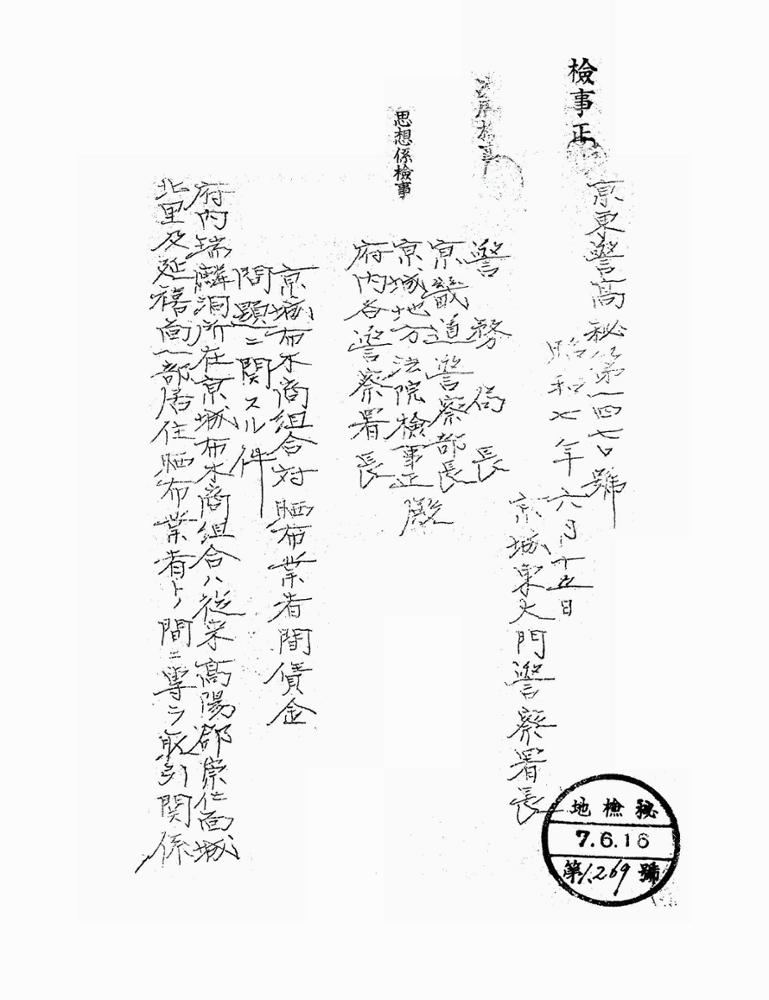 檢事正
京東警高秘第一四七〇號
昭和七年六月十五日
京城東大門警察署長
警務局長
京畿道警察部長
京城地方法院檢事正殿
府内各警察署長
思想係檢事
京城布木商組合対晒布業者間賃金
問題ニ関スル件
府内瑞麟洞所在京城布木商組合ハ従来高陽郡崇仁面城
北里及延禧面一部居住晒布業者トノ間ニ専ラ取引関係
地檢秘
7.6.16
第1,269號